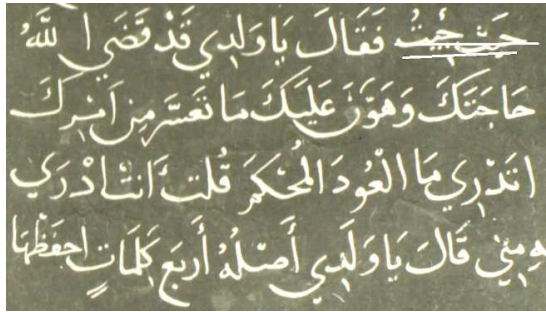 حَيث جِئتُ فَقَالَ يَا وَلَدِي قَدْ قَضَي اللَّهُ
حَاجَتَكَ وَهَوَّنَ عَلَيكَ مَا تَعَسَّرَ مِن اَمْرِكَ
اتَدْرِي مَا الْعُودَ الْمُحْكَمَ قُلتَ أنتَ ادْرَي
هِ مِنِّي قَالَ يَا وَلَدِي أَصْلُهُ أَربَع كَلِمَاتٍ احفَظْهَا